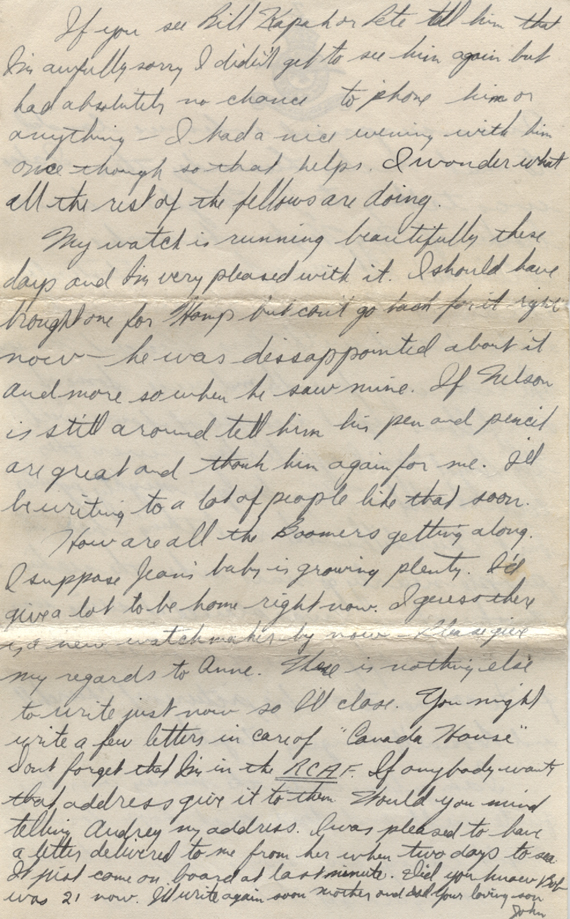 If you see Bill Kapak or Pete tell him that
I'm awfully sorry I didn't get to see him again but
had absolutely no chance to phone him or
anything – I had a nice evening with him
once though so that helps. I wonder what
all the rest of the fellows are doing.
My watch is running beautifully these
days and I'm very pleased with it. I should have
brought one for Hamp but can't go back for it right
now – he was dissappointed about it
and more so when he saw mine. If Nelson
is still around tell him his pen and pencil
are great and thank him again for me. I'll
be writing to a lot of people like that soon.
How are all the Boomers getting along.
I suppose Jean's baby is growing plenty. I'd
give a lot to be home right now. I guess there
is a new watchmaker by now – Please give
my regards to Anne. There is nothing else
to write just now so I'll close. You might
write a few letters in care of "Canada House"
Dont forget that I'm in the RCAF. If anybody wants
that address give it to them Would you mind
telling Audrey my address. I was pleased to have
a letter delivered to me from her when two days to sea
It just come on board at last minute. Did you know Bob
was 21 now. I'll write again soon mother and dad Your loving son
John